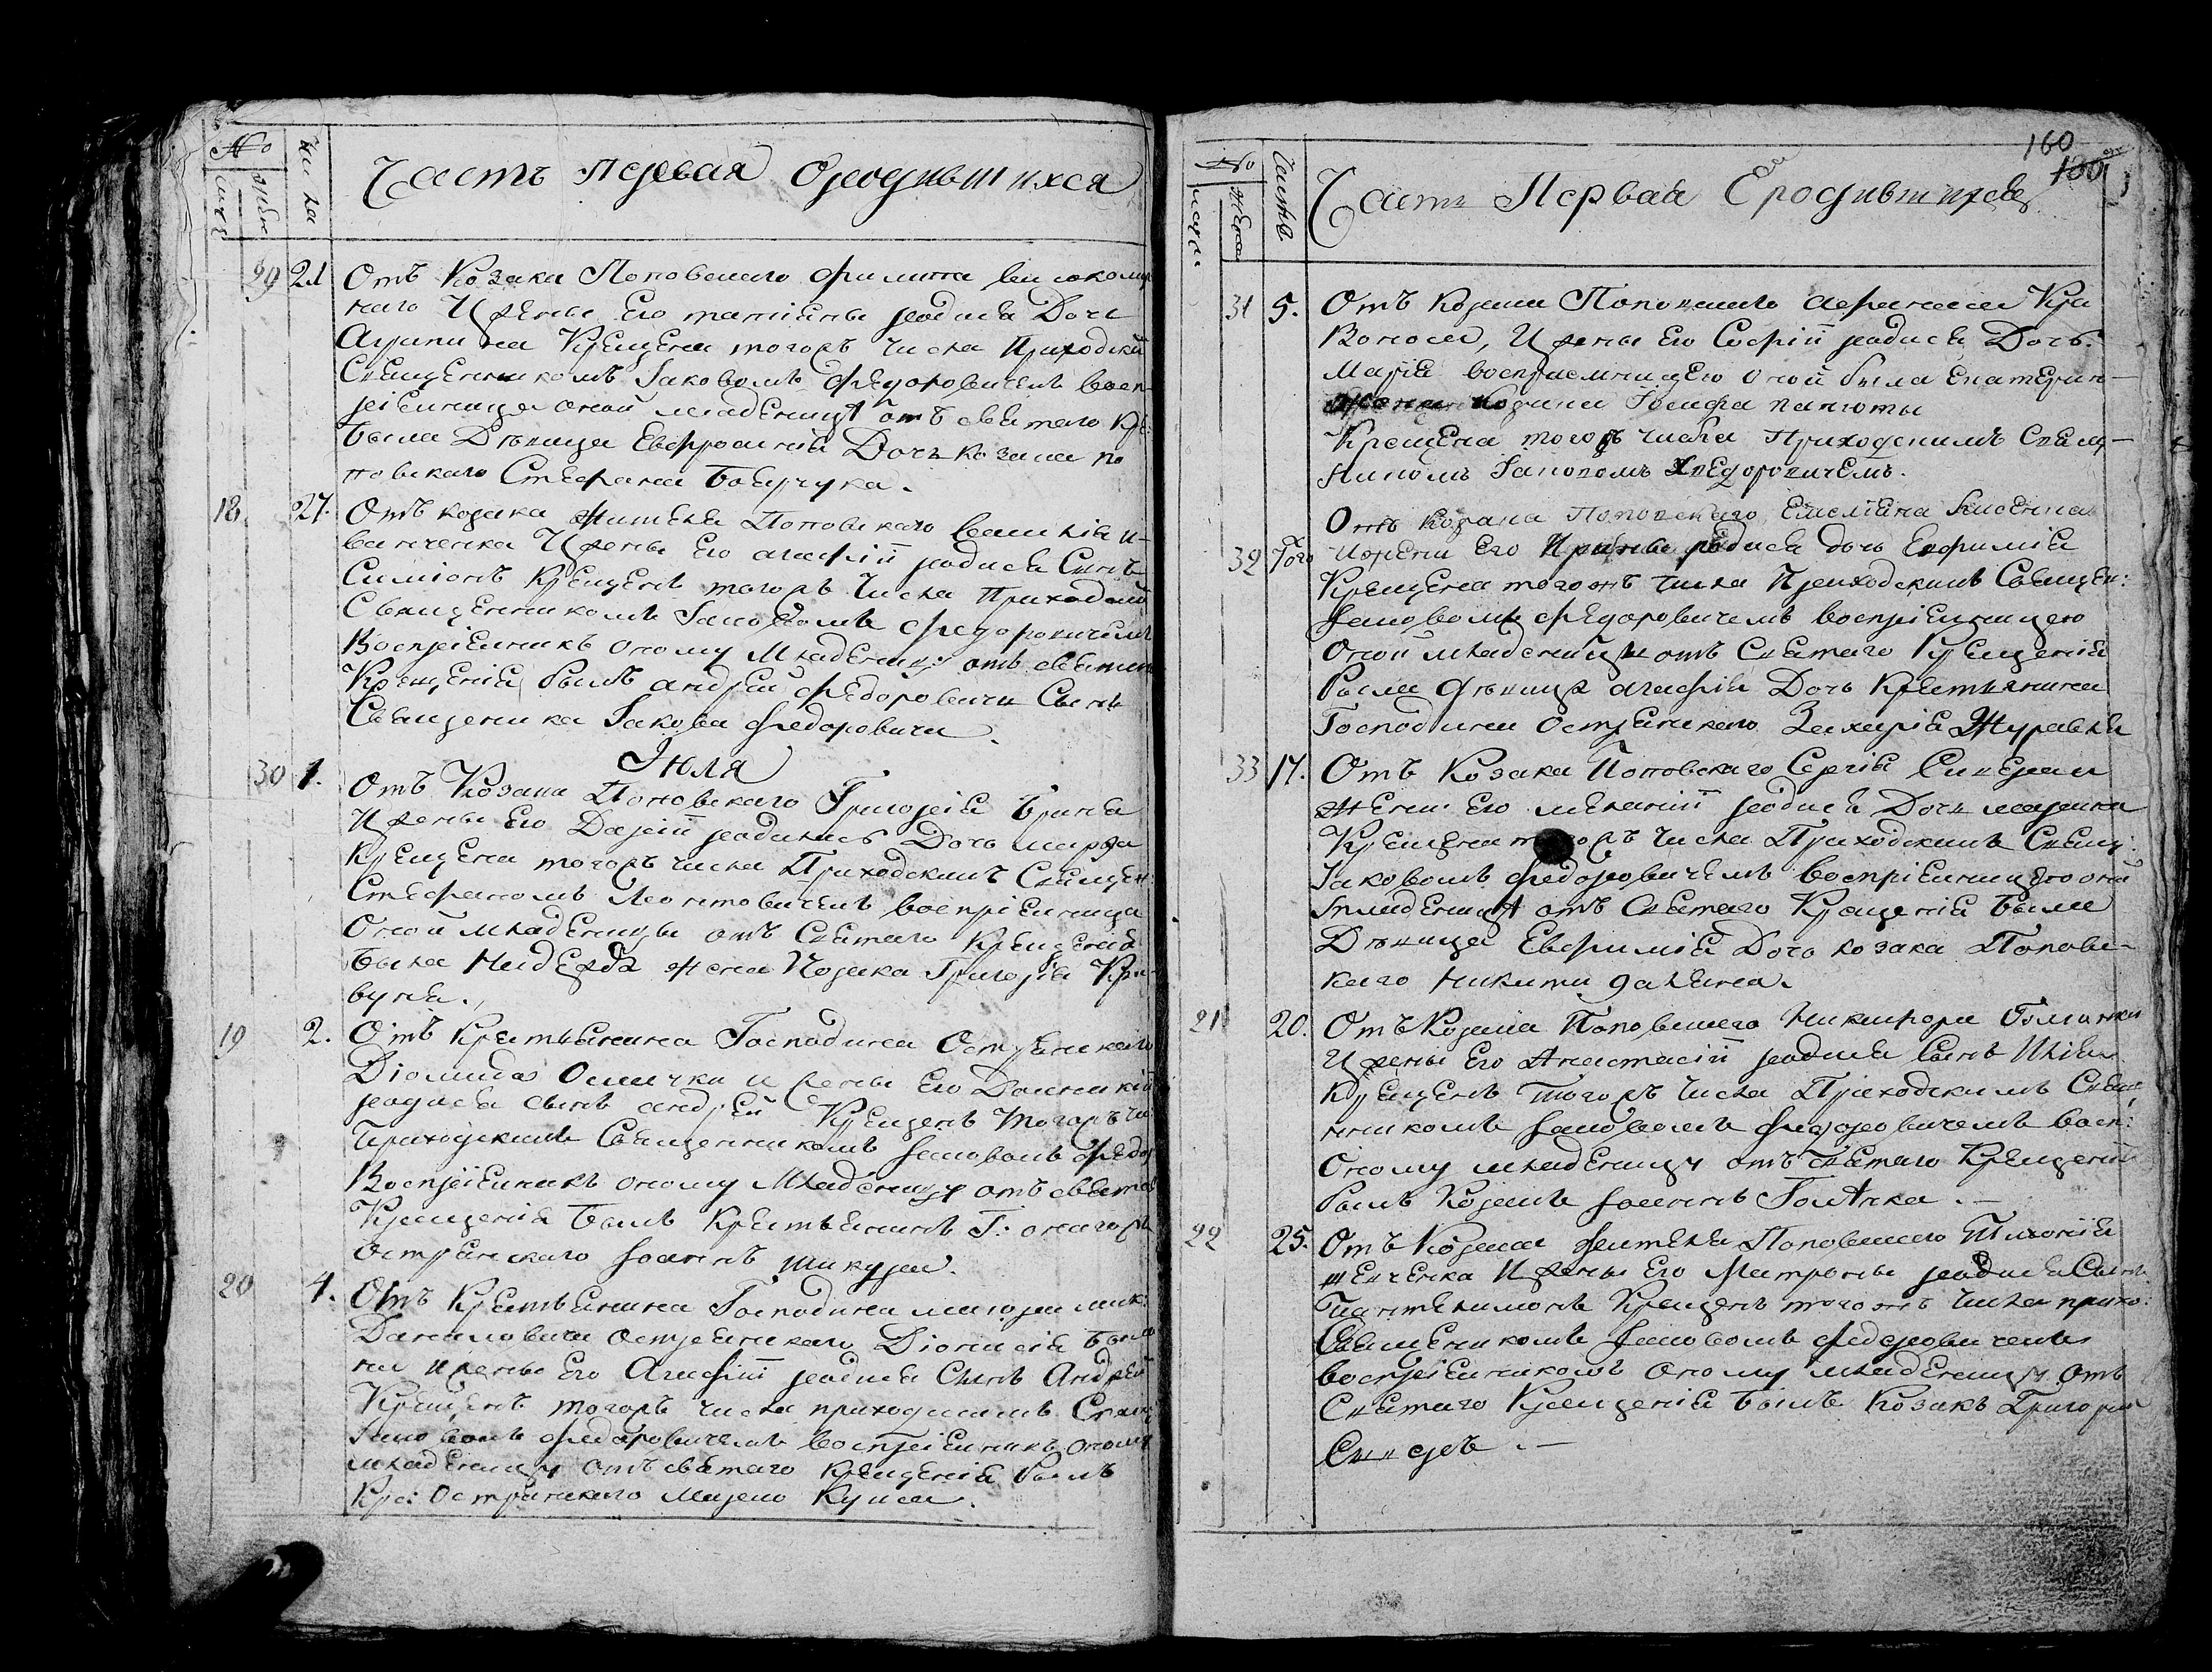 №
мужс
женс
Числа
Часть первая Ородившихся
29 21 Отъ Козака Поповского Филипа
ного И жены Его татіаны родися Дочь
Агрипина Крещена тогожъ числа Приходскимъ
Священникомъ Іаковомъ Федоровичемъ восп-
ріемница оной младеницѣ отъ святаго кре:
была Дѣвица Евфросинія Дочь козака по
повского Стефана
18 27. Отъ козака жителя Поповского Василія и-
ванченка И жены Его агафіи родися Сынъ
Симіонъ Крещенъ тогожъ Числа Приходским
Священникомъ Іаковомъ Федоровичемъ
Воспріемникъ оному Младенцу отъ святаго
Крещенія былъ андрей Федоровичъ Сынъ
Священика Іакова Федоровича
Июля
30 1. Отъ Козака Поповского Григорія
И жены Его Даріи родилась Дочь марфа
Крещена тогожъ числа Приходскимъ Священ:
Стефаномъ Леонтовичемъ воспріемница
Оной младеницы отъ Святаго Крещенія
была Надежда жена Козака Григорія Кри-
вуна.
19 2. Отъ Крестьянина Господина Острянского
Діомида и жены Его Домникіи
родися сынъ андрей Крещенъ Тогожъ чи:
Приходскимъ Священникомъ Іаковомъ Федор
Воспріемникъ оному Младенцу отъ святаго
Крещенія былъ Крестьянинъ Г: оногожъ
Острянского Іоаннъ
20 4. Отъ Крестьянина Господина
Даниловича Острянского Діонисія
на и жены Его Агафіи родися Сынъ Андрей
Крещенъ тогожъ числа приходскимъ Свящ:
Іаковомъ Федоровичемъ воспріемникъ оному
младенцу отъ святаго крещенія былъ
Кре: Острянского
160
100
№
мужс
женс
Числа
Часть Первая Ородившихся
31 5. Отъ козака Поповского афанасия Кри
Воноса, И жены Его Софіи родися Дочь
Марія восприемницею оной была Екатерин-
жена козака Іосифа панюты
Крещена тогожъ числа Приходскимъ Свящ-
никомъ Іаковомъ Хведоровичемъ.
Отъ козака Поповского Емеліана
32 Того Ижени Его Ирины родися дочь Евфимія
Крещена тогожъ числа Приходскимъ Священ:
Іаковомъ Федоровичемъ воспріемницею
Оной младеницы отъ Святаго Крещенія
Была Дѣвица агафія Дочь Крестьянина
Господина Острянского Захарія Журавля
33 17. Отъ Козака Поповского Сергія
жени Его меланіи родися Дочь марина
Крещена тогожъ числа Приходскимъ Свящ:
Іаковомъ Федоровичемъ воспріемницею оной
младеницѣ отъ Святаго Крещенія была
Дѣвица Евфимія Дочь козака Поповс-
кого Никити
21 20. Отъ Козака Поповского Никифора
И жены Его Анастасіи родися Сынъ Илія
Крещенъ Тогожъ числа Приходскимъ Свящ
нникомъ Іаковомъ Федоровичемъ восп:
Оному младенцу отъ Святаго Крещеніи
Былъ Козакъ Іоаннъ .—
22 25. Отъ Козака жителя Поповского Тихонія
И жены Его Матроны родися Сынъ
Пантелимонъ Крещенъ тогожъ числа прихо:
Священикомъ Іаковомъ Федоровичемъ
воспріемникомъ оному младенцу отъ
Святаго Крещенія былъ Козакъ Григорій